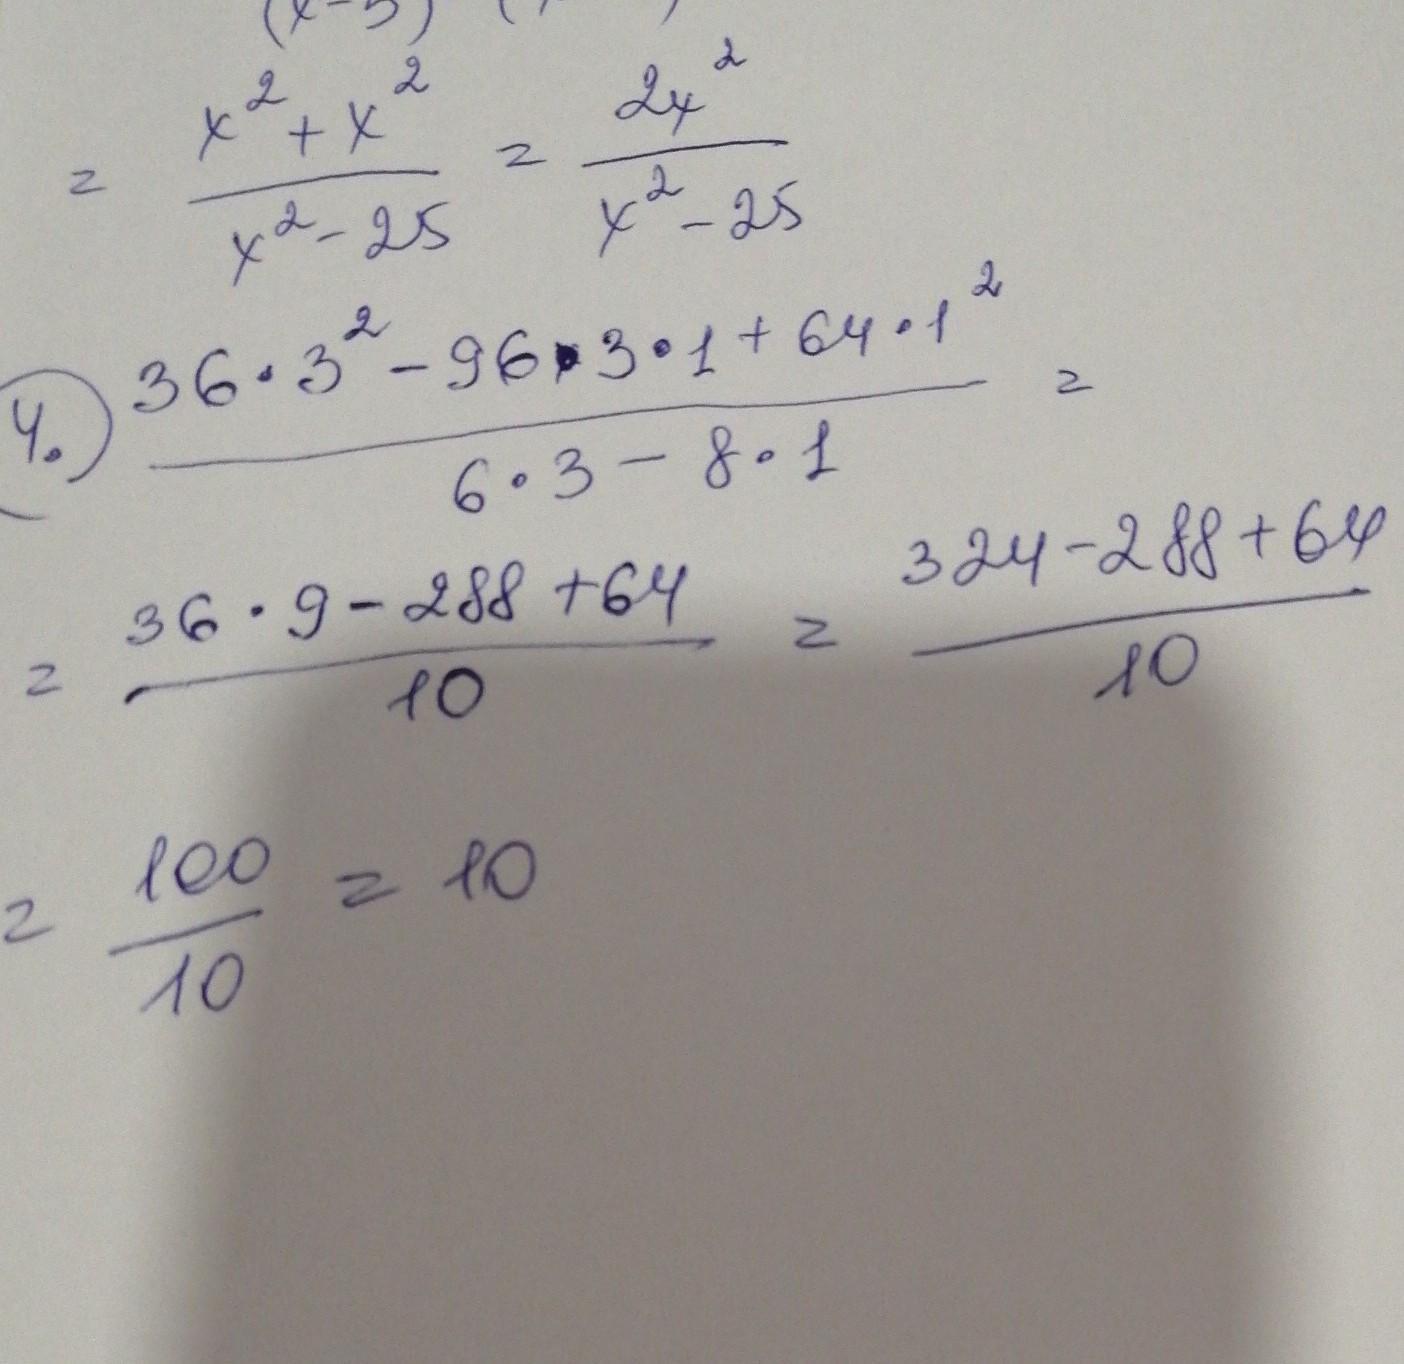 (x-5)
= x²+x² / x²-25 = 2x² / x²-25
4.) 36·3²-96·3·1+64·1² / 6·3-8·1 =
= 36·9-288+64 / 10 = 324-288+64 / 10
= 100 / 10 = 10